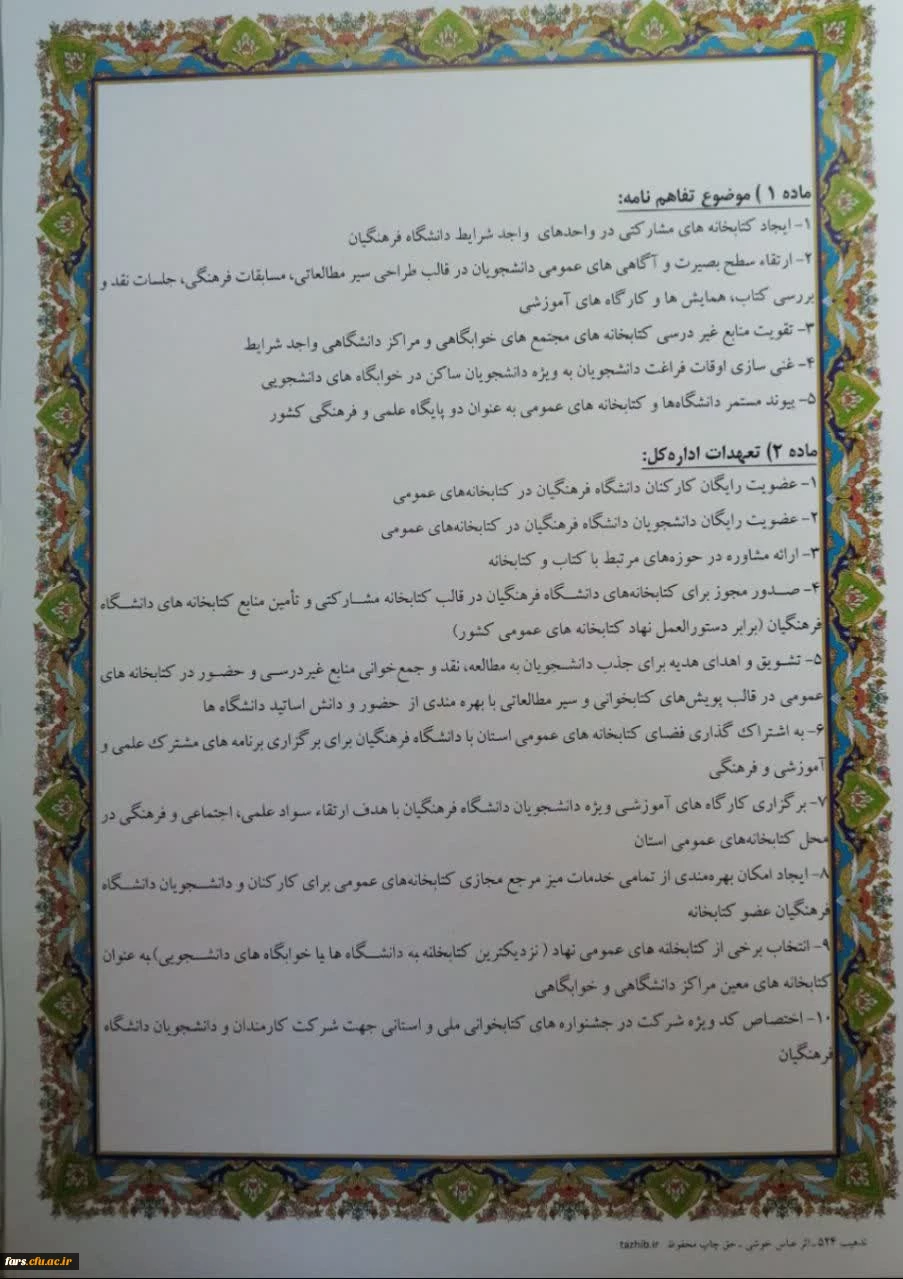 ماده ۱ ) موضوع تفاهم نامه:
۱- ایجاد کتابخانه های مشارکتی در واحدهای واجد شرایط دانشگاه فرهنگیان
۲- ارتقاء سطح بصیرت و آگاهی های عمومی دانشجویان در قالب طراحی سیر مطالعاتی، مسابقات فرهنگی، جلسات نقد و
بررسی کتاب، همایش ها و کارگاه های آموزشی
۳- تقویت منابع غیر درسی کتابخانه های مجتمع های خوابگاهی و مراکز دانشگاهی واجد شرایط
۴- غنی سازی اوقات فراغت دانشجویان به ویژه دانشجویان ساکن در خوابگاه های دانشجویی
۵- پیوند مستمر دانشگاه‌ها و کتابخانه های عمومی به عنوان دو پایگاه علمی و فرهنگی کشور
ماده ۲) تعهدات اداره‌کل:
۱- عضویت رایگان کارکنان دانشگاه فرهنگیان در کتابخانه‌های عمومی
۲- عضویت رایگان دانشجویان دانشگاه فرهنگیان در کتابخانه‌های عمومی
۳- ارائه مشاوره در حوزه‌های مرتبط با کتاب و کتابخانه
۴- صدور مجوز برای کتابخانه‌های دانشگاه فرهنگیان در قالب کتابخانه مشارکتی و تأمین منابع کتابخانه های دانشگاه
فرهنگیان (برابر دستورالعمل نهاد کتابخانه های عمومی کشور)
۵- تشویق و اهدای هدیه برای جذب دانشجویان به مطالعه، نقد و جمع‌خوانی منابع غیردرسی و حضور در کتابخانه های
عمومی در قالب پویش‌های کتابخوانی و سیر مطالعاتی با بهره مندی از حضور و دانش اساتید دانشگاه ها
۶- به اشتراک گذاری فضای کتابخانه های عمومی استان با دانشگاه فرهنگیان برای برگزاری برنامه های مشترک علمی و
آموزشی و فرهنگی
۷- برگزاری کارگاه های آموزشی ویژه دانشجویان دانشگاه فرهنگیان با هدف ارتقاء سواد علمی، اجتماعی و فرهنگی در
محل کتابخانه‌های عمومی استان
۸- ایجاد امکان بهره‌مندی از تمامی خدمات میز مرجع مجازی کتابخانه‌های عمومی برای کارکنان و دانشجویان دانشگاه
فرهنگیان عضو کتابخانه
۹- انتخاب برخی از کتابخانه های عمومی نهاد ( نزدیکترین کتابخانه به دانشگاه ها یا خوابگاه های دانشجویی)به عنوان
کتابخانه های معین مراکز دانشگاهی و خوابگاهی
۱۰- اختصاص کد ویژه شرکت در جشنواره های کتابخوانی ملی و استانی جهت شرکت کارمندان و دانشجویان دانشگاه
فرهنگیان
تذهیب ۵۲۴ - اثر عباس خوشی - حق چاپ محفوظ tazhib.ir
fars.cfu.ac.ir